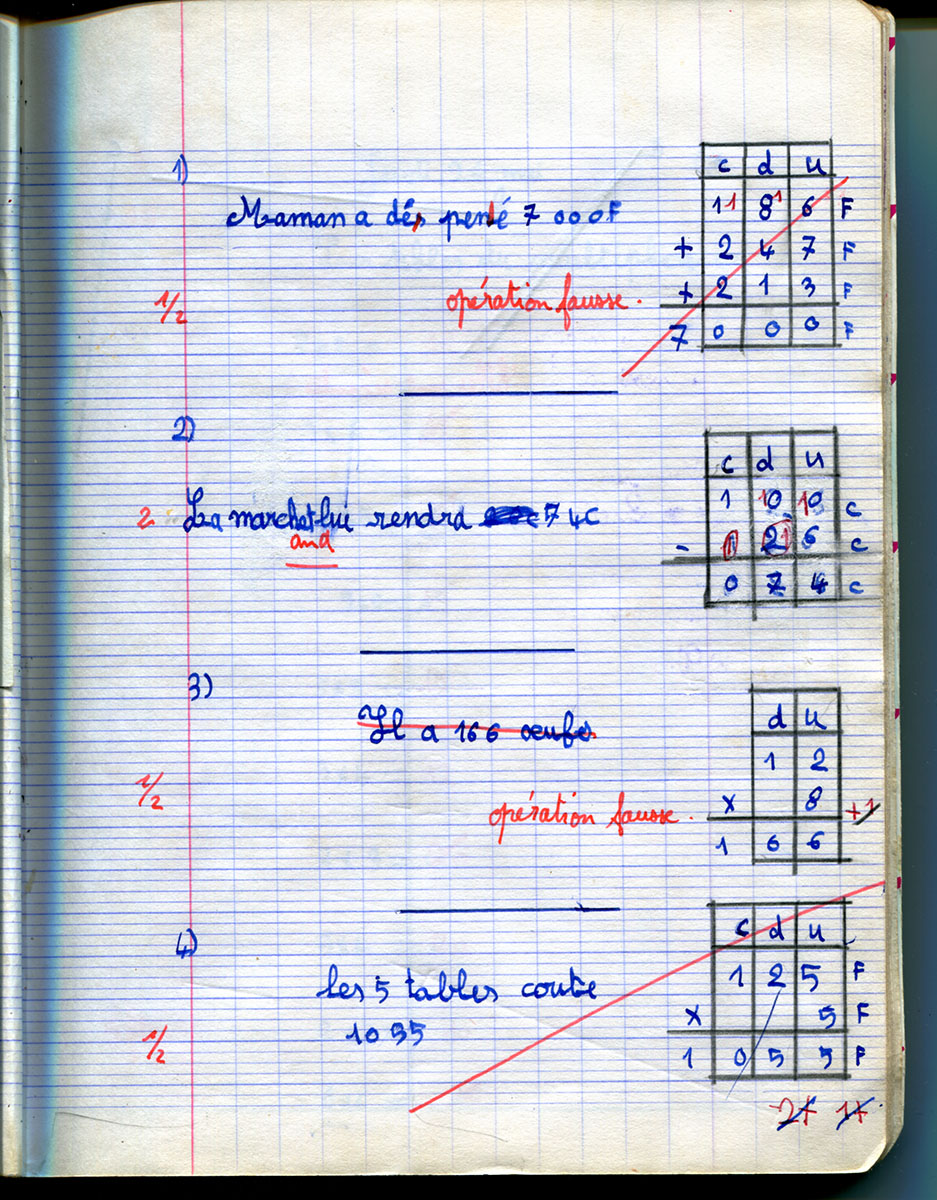 1)
c d u
11 81 6 F
Maman a dés pensé 7 000F
+ 2 4 7 F
1/2 opération fausse. + 2 1 3 F
7 0 0 0 F
2)
c d u
1 10 10 c
2 La marchet lui rendra 74c
and
- 1 2 1 6 c
0 7 4 c
3)
Il a 166 œufs
d u
1 2
1/2 opération fausse. x 8 +1
1 6 6
4)
c d u
les 5 tables coute 1 2 5 F
1055 x 5 F
1/2 1 0 5 5 F